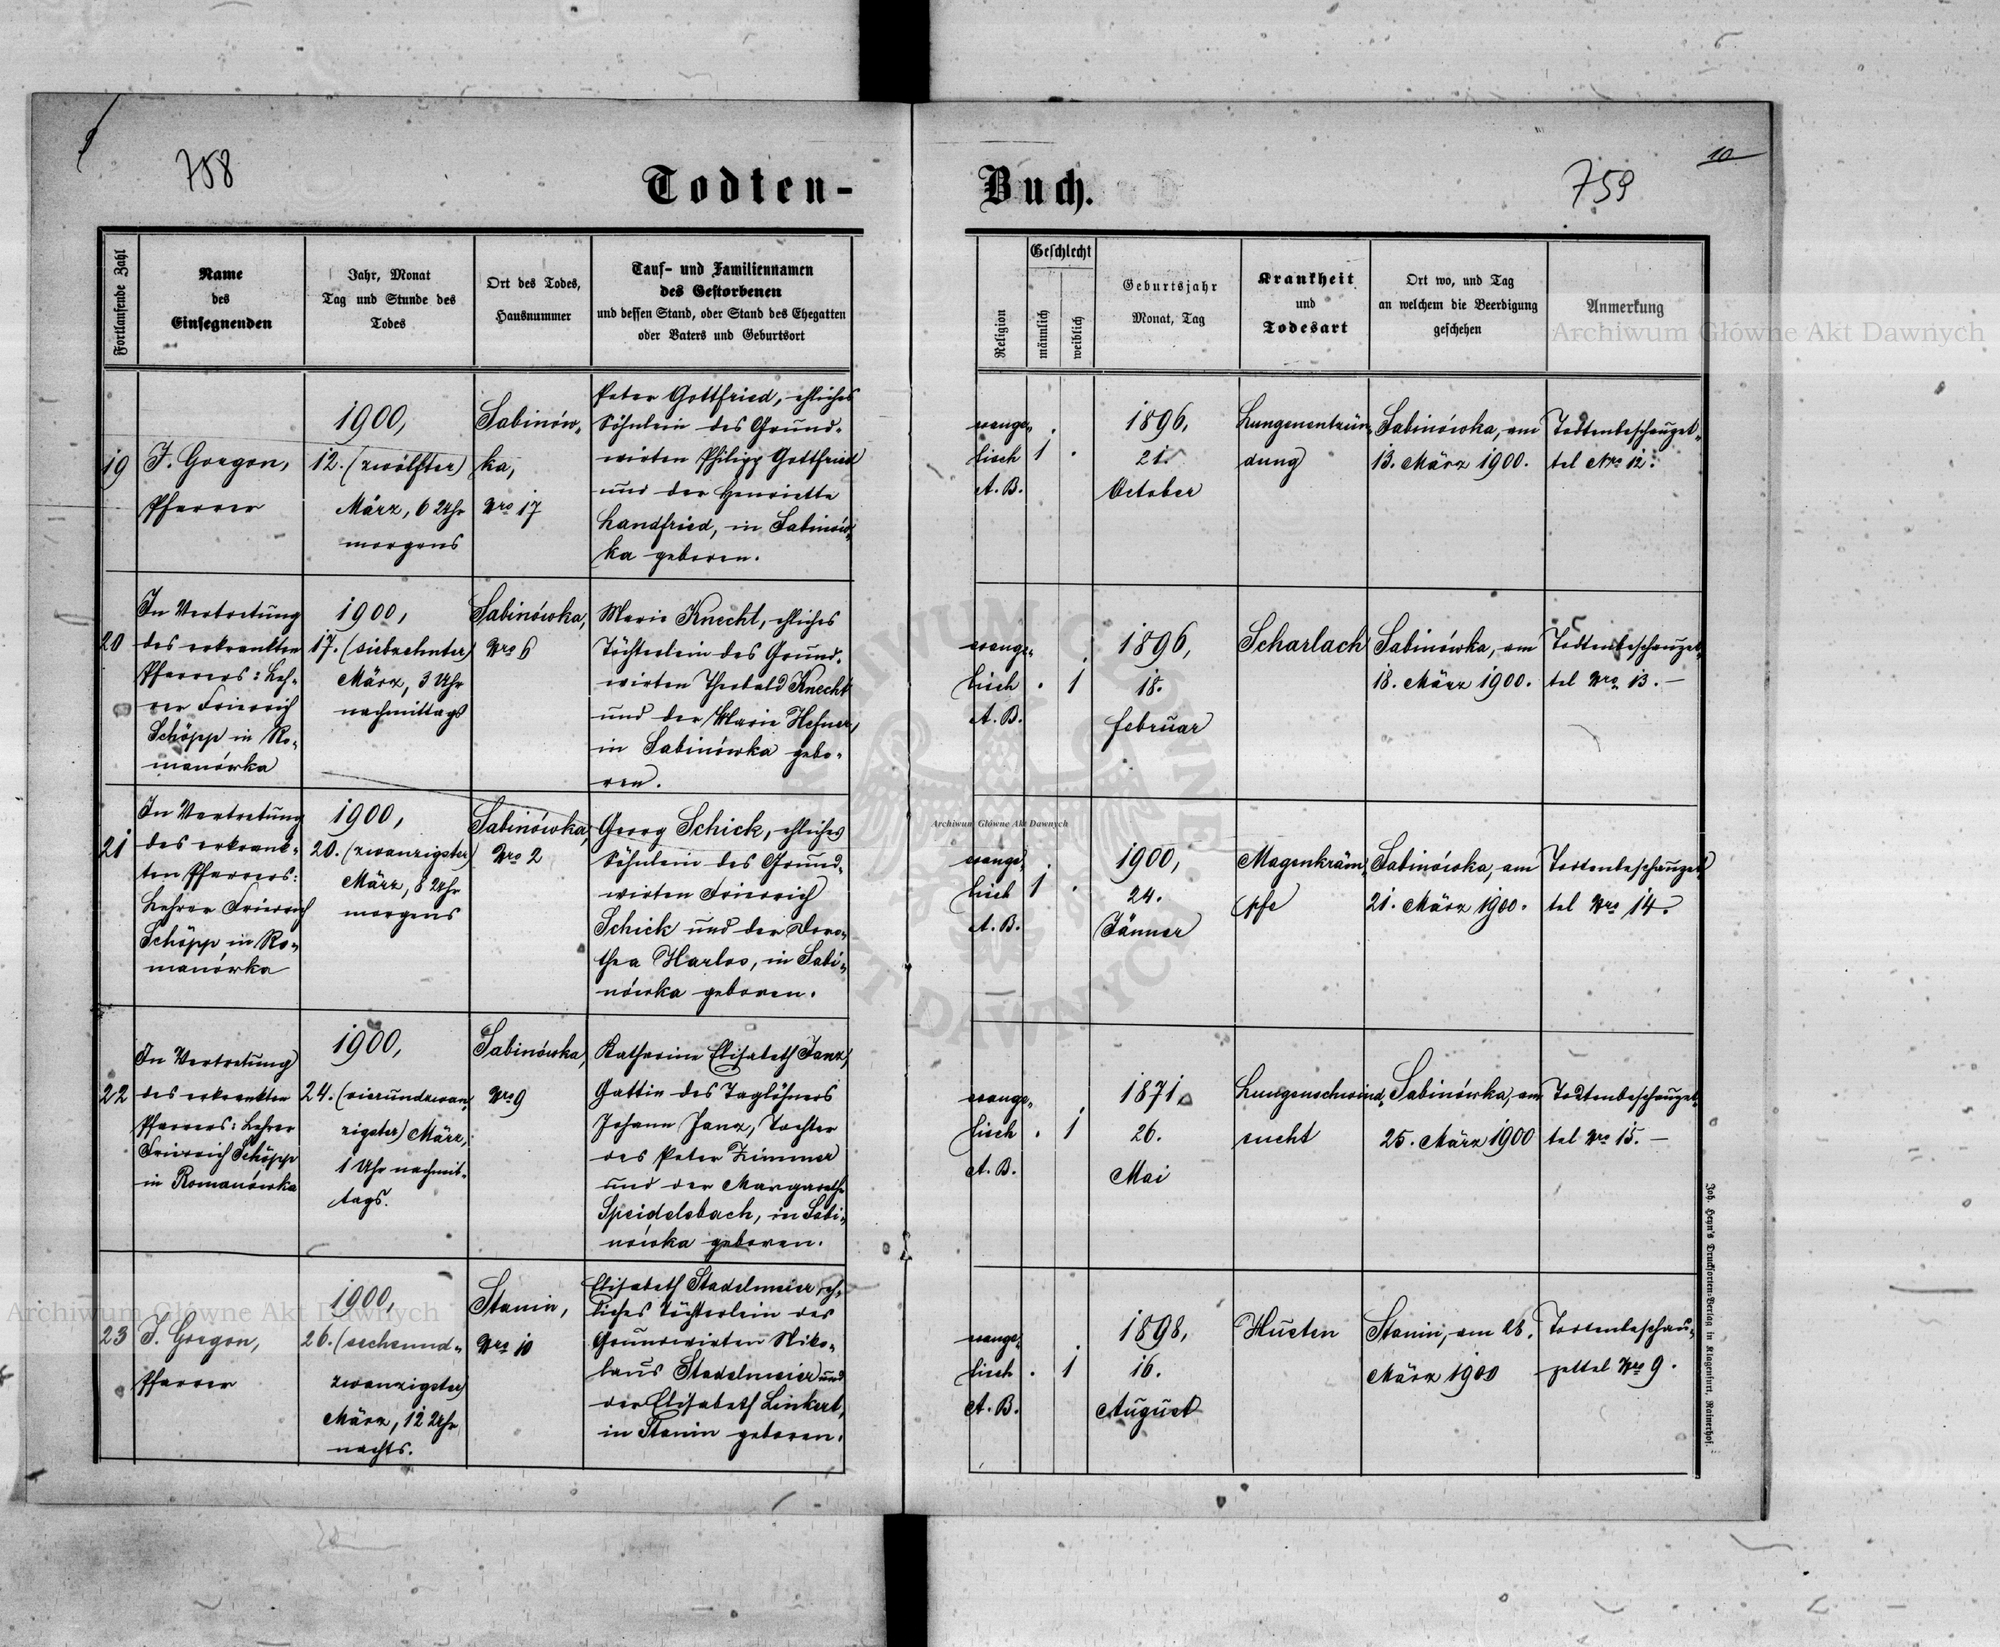 758
Todten-
Buch.
759
10
Fortlaufende Zahl
Name
des
Einsegnenden
Jahr, Monat
Tag und Stunde des
Todes
Ort des Todes,
Hausnummer
Tauf- und Familiennamen
des Gestorbenen
und dessen Stand, oder Stand des Ehegatten
oder Vaters und Geburtsort
Religion
Geschlecht
männlich
weiblich
Geburtsjahr
Monat, Tag
Krankheit
und
Todesart
Ort wo, und Tag
an welchem die Beerdigung
geschehen
Anmerkung
19
J. Gorgon,
Pfarrer
1900,
12. (zwölfter)
März, 6 Uhr
morgens
Sabinów-
ka,
Nro 17
Peter Gottfried, ehliches
Söhnlein des Grund-
wirten Philipp Gottfried
und der Henriette
Landfried, in Sabinów-
ka geboren.
evange-
lisch
A. B.
1
.
1896,
21.
October
Lungenentzün-
dung
Sabinówka, am
13. März 1900.
Todtenbeschauzet-
tel Nro 12.
20
In Vertretung
des erkrankten
Pfarrers: Leh-
rer Friedrich
Schöpp in Ro-
manówka
1900,
17. (siebzehnter)
März, 3 Uhr
nachmittags
Sabinówka,
Nro 6
Marie Knecht, ehliches
Töchterlein des Grund-
wirten Theobald Knecht
und der Marie Hefner,
in Sabinówka gebo-
ren.
evange-
lisch
A. B.
.
1
1896,
18.
februar
Scharlach
Sabinówka, am
18. März 1900.
Todtenbeschauzet-
tel Nro 13. —
21
In Vertretung
des erkrank-
ten Pfarrers:
Lehrer Friedrich
Schöpp in Ro-
manówka
1900,
20. (zwanzigster)
März, 8 Uhr
morgens
Sabinówka,
Nro 2
Georg Schick, ehliches
Söhnlein des Grund-
wirten Friedrich
Schick und der Doro-
thea Harlos, in Sabi-
nówka geboren.
evange-
lisch
A. B.
1
.
1900,
24.
Jänner
Magenkräm-
pfe
Sabinówka, am
21. März 1900.
Todtenbeschauzet-
tel Nro 14.
22
In Vertretung
des erkrankten
Pfarrers: Lehrer
Friedrich Schöpp
in Romanówka
1900,
24. (vierundzwan-
zigster) März,
1 Uhr nachmit-
tags.
Sabinówka,
Nro 9
Katharine Elisabeth Janz,
Gattin des Taglöhners
Johann Janz, Tochter
des Peter Zimmer
und der Margarethe
Speidelsbach, in Sabi-
nówka geboren.
evange-
lisch
A. B.
.
1
1871,
26.
Mai
Lungenschwind-
sucht
Sabinówka, am
25. März 1900
Todtenbeschauzet-
tel Nro 15. —
23
J. Gorgon,
Pfarrer
1900,
26. (sechsund-
zwanzigster)
März, 12 Uhr
nachts.
Stanin,
Nro 10
Elisabeth Stadelmeier, eh-
liches Töchterlein des
Grundwirten Niko-
laus Stadelmeier und
der Elisabeth Linkert,
in Stanin geboren.
evange-
lisch
A. B.
.
1
1898,
16.
August
Husten
Stanin, am 28.
März 1900
Todtenbeschau-
zettel Nro 9.
Joh. Heyn's Drucksorten-Verlag in Klagenfurt, Rainerhof.
Archiwum Główne Akt Dawnych
Archiwum Główne Akt Dawnych
Archiwum Główne Akt Dawnych